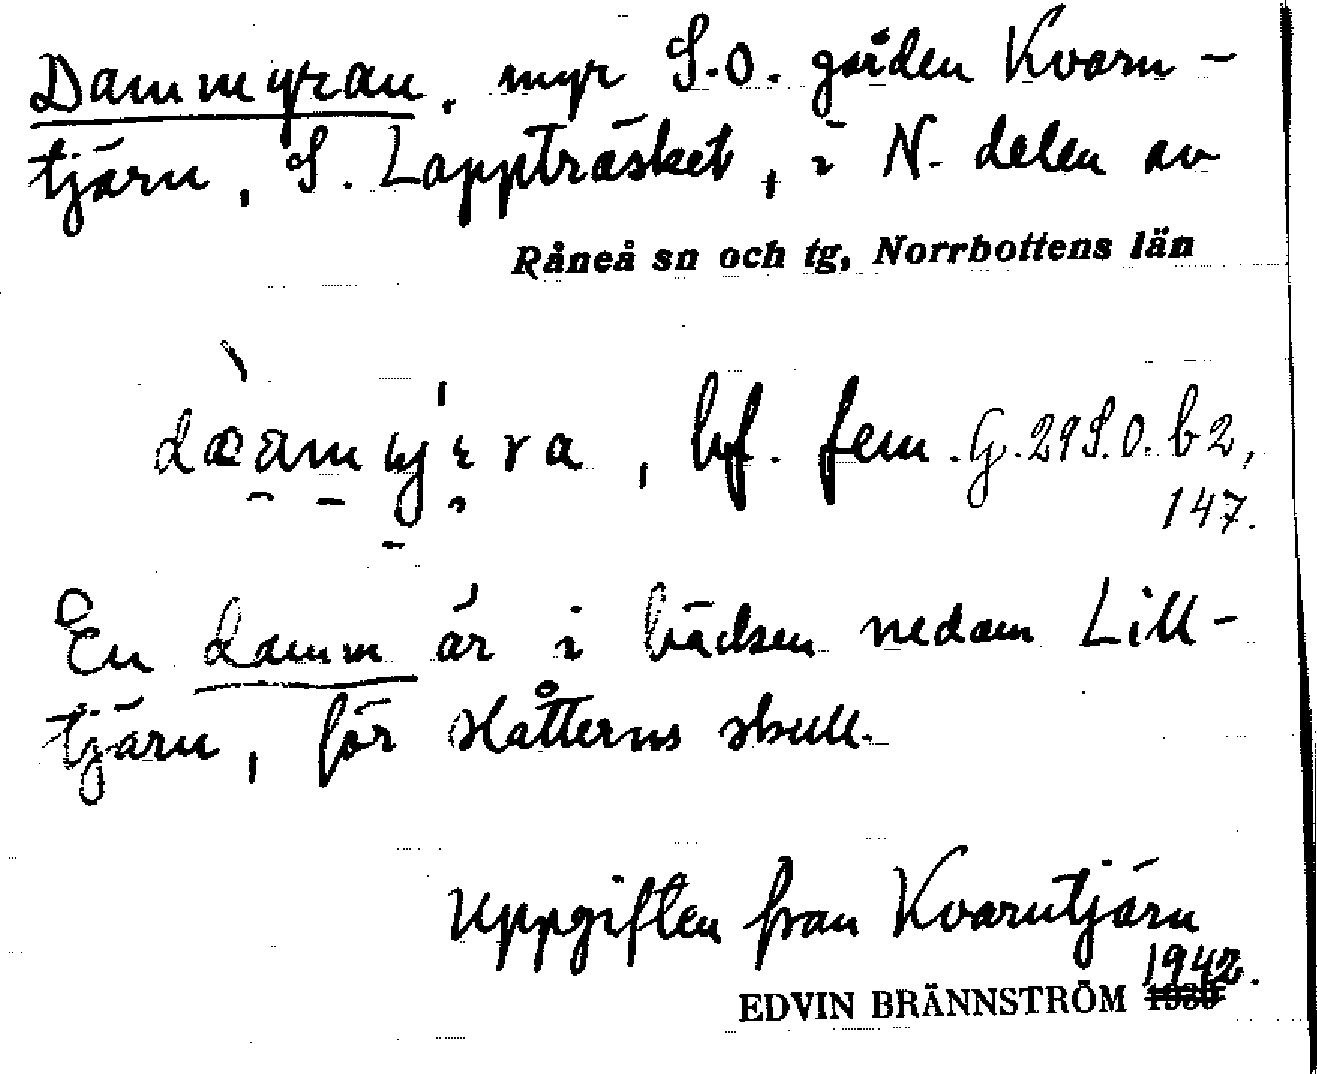 Dammyran, myr S.O. gården Kvarn-
tjärn, S. Lappträsket, i N. delen av
Råneå sn och tg, Norrbottens län
, bf. fem. G. 29 S.O. b2,
147.
En damm är i bäcken nedom Lill-
tjärn, för slåtterns skull.
Uppgiften från Kvarntjärn
1942.
EDVIN BRÄNNSTRÖM 1939